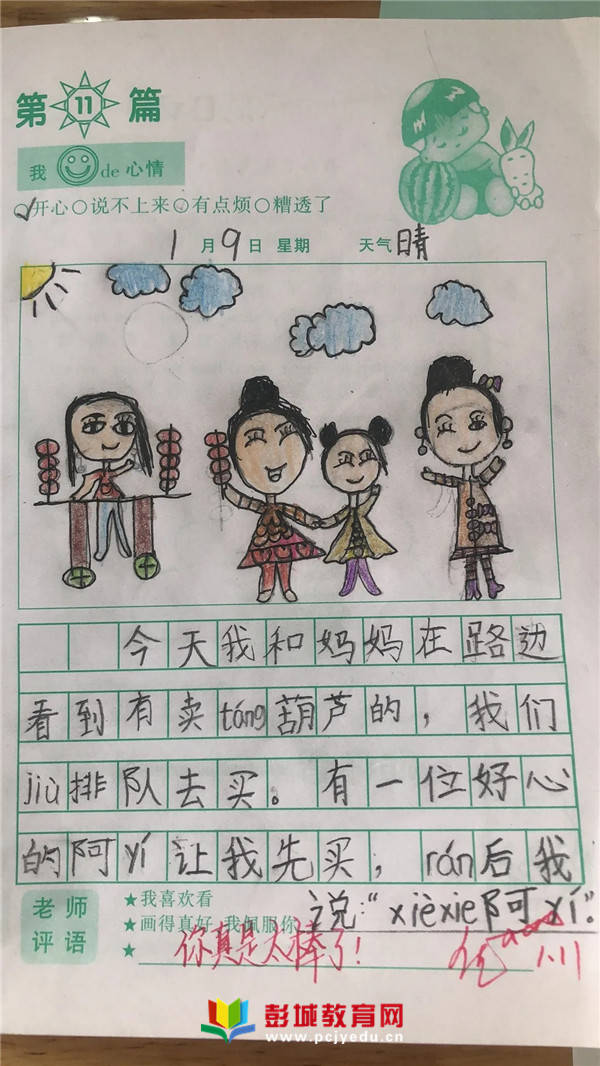 第11篇
我de心情
开心○说不上来○有点烦○糟透了
1月9日 星期 天气晴
今天我和妈妈在路边
看到有卖táng葫芦的，我们
jiù排队去买。有一位好心
的阿yí让我先买，rán后我
说：“xièxie阿yí。”
老师评语
★我喜欢看
★画得真好，我佩服你
★你真是太棒了！
1.11
彭城教育网
www.pcjyedu.cn